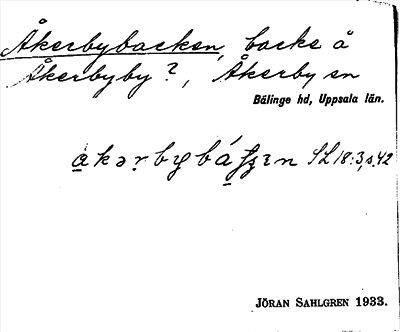 Åkerbybacken, backe å
Åkerbyby?, Åkerby sn
Bälinge hd, Uppsala län.
SL 18:3, s. 42
JÖRAN SAHLGREN 1933.